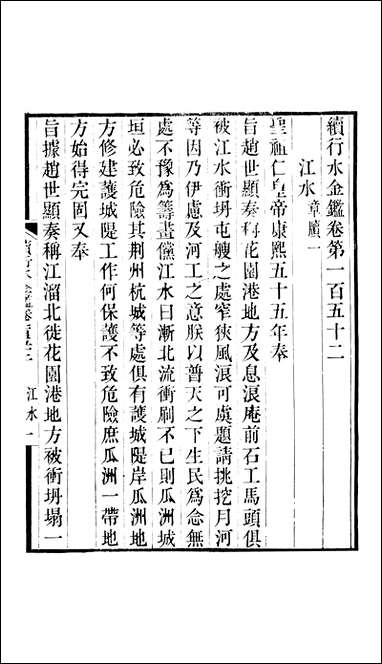 續行水金鑑卷第一百五十二
江水 章牘一
聖祖仁皇帝康熙五十五年奉
旨趙世顯奏稱花園港地方及息浪庵前石工馬頭俱
被江水衝坍屯艘之處窄狹風浪可虞題請挑挖月河
等因乃伊慮及河工之意朕以普天之下生民為念無
處不豫為籌畫儻江水日漸北流衝刷不已則瓜洲城
垣必致危險其荆州杭城等處俱有護城隄岸瓜洲地
方修建護城隄工作何保護不致危險庶瓜洲一帶地
方始得完固又奉
旨據趙世顯奏稱江溜北徙花園港地方被衝坍塌一
江水 一